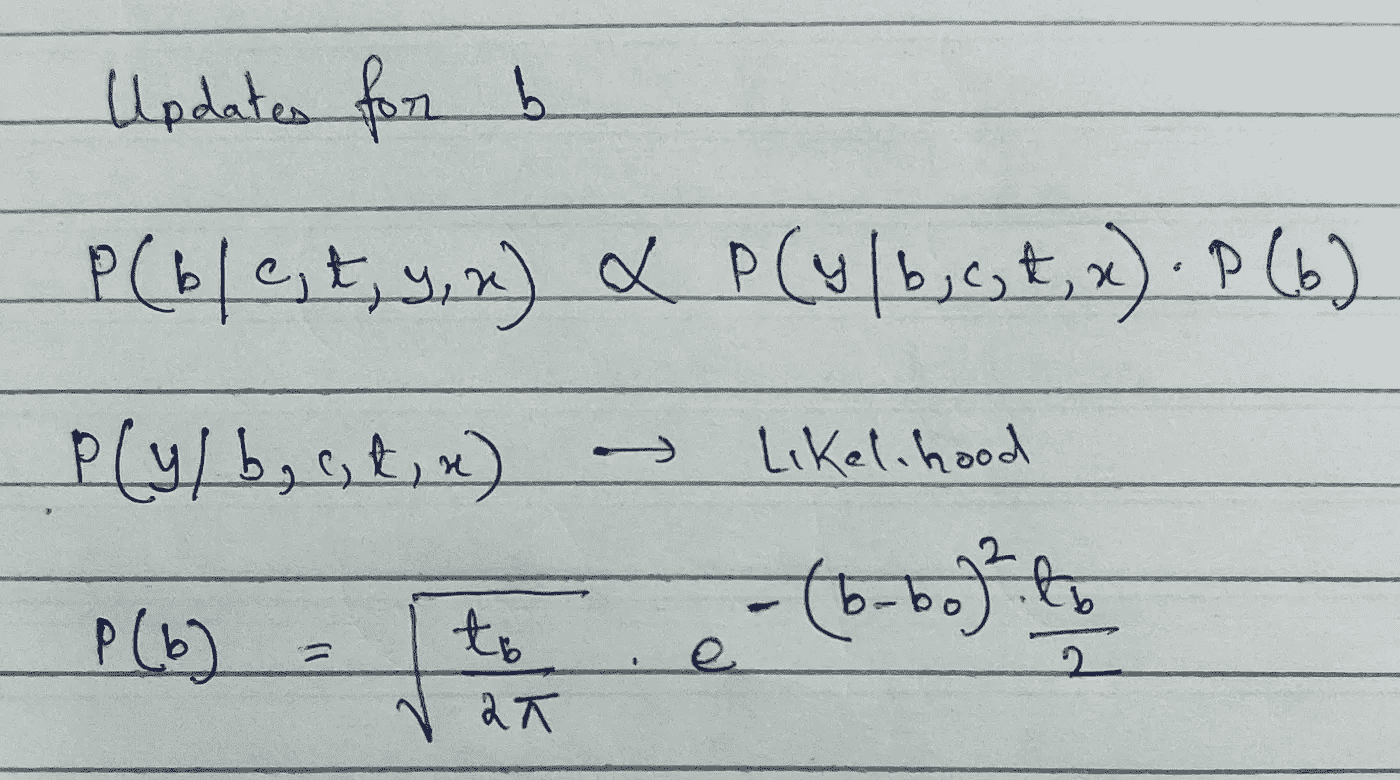 Updates for b
P(b/c,t,y,x) ∝ P(y/b,c,t,x) · P(b)
P(y/b,c,t,x) → Likelihood
P(b) = √(t_b/2π) · e^(-(b-b₀)²·t_b/2)